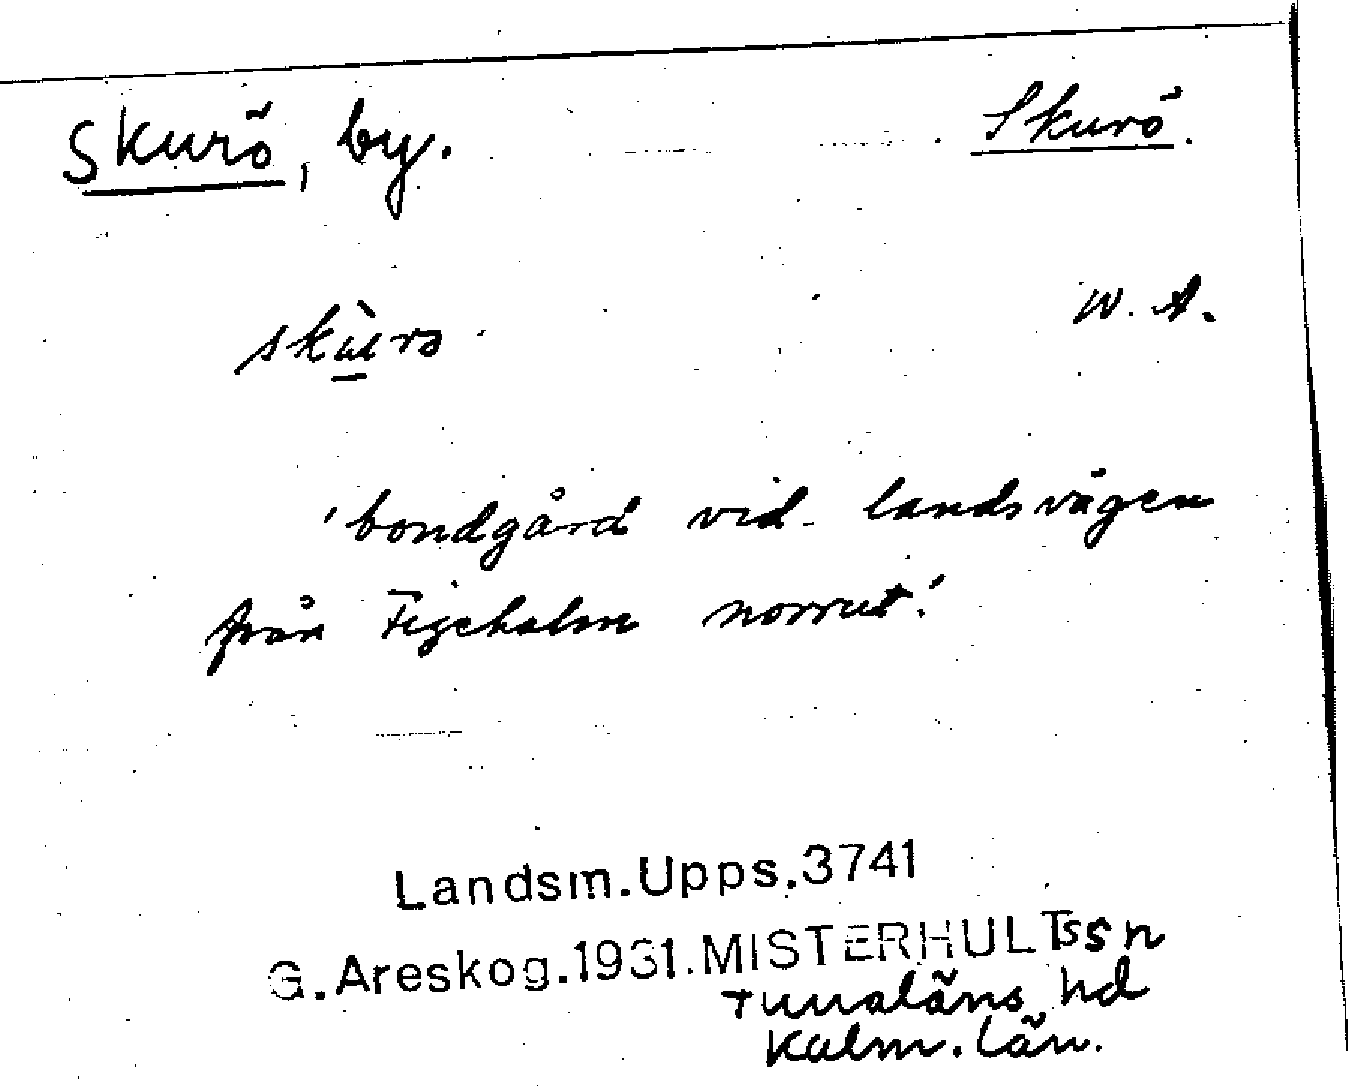 Skurö, by. Skurö.
skùrə W. A.
'bondgård vid landsvägen
från Figeholm norrut.'
Landsm.Upps.3741
G.Areskog.1931.MISTERHULTs sn
Tunaläns hd
Kalm. län.